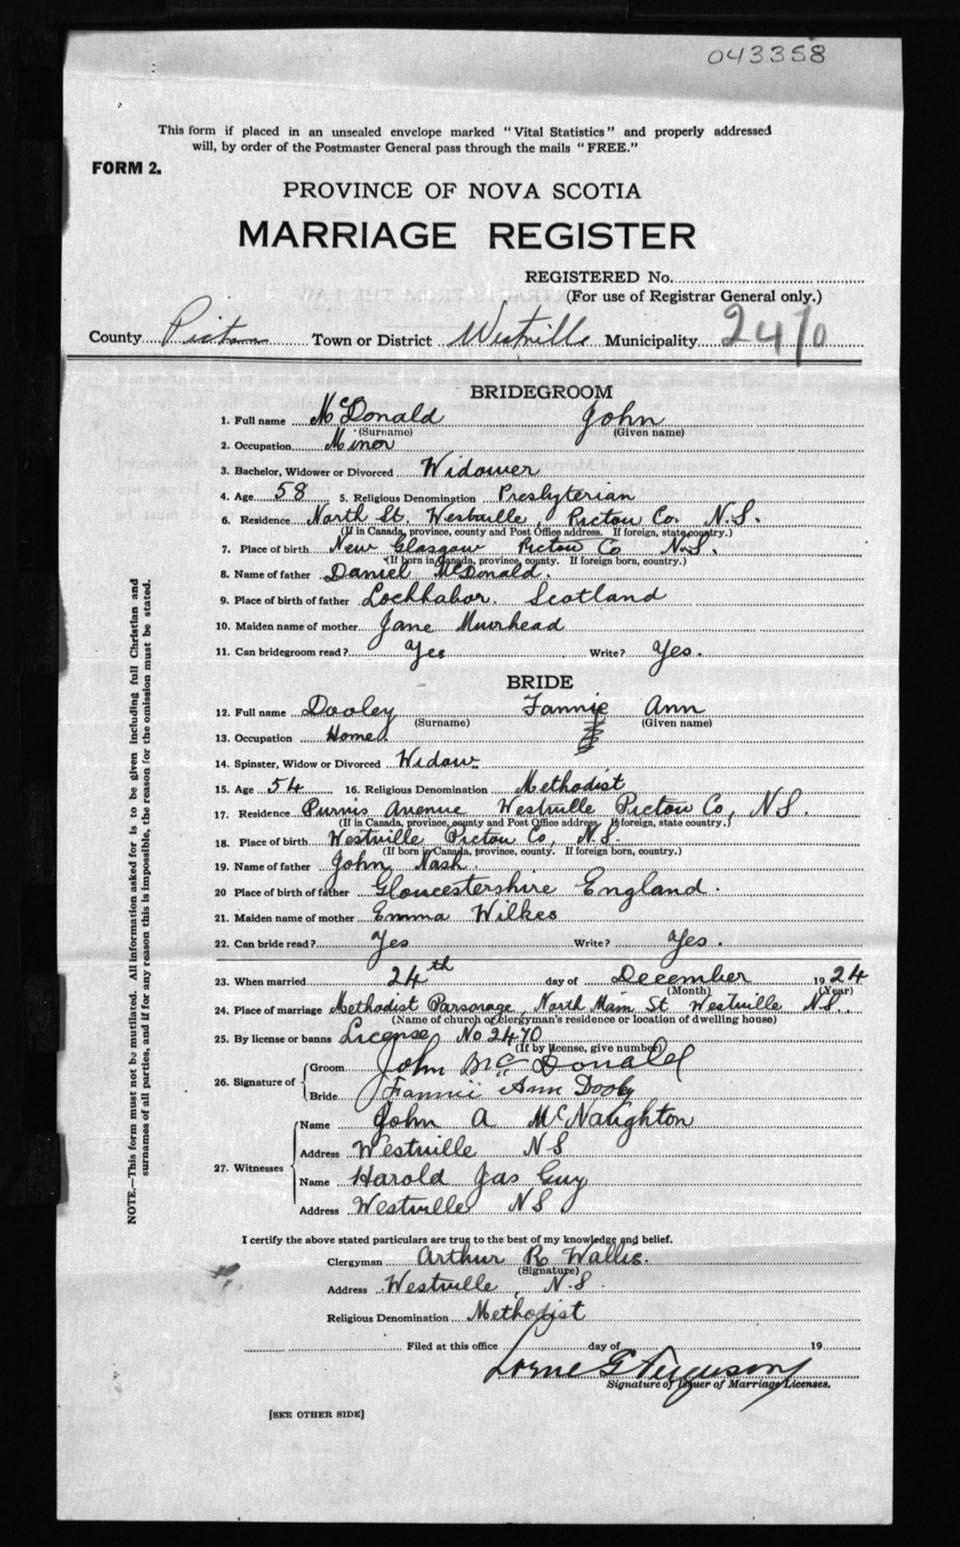 043358
This form if placed in an unsealed envelope marked "Vital Statistics" and properly addressed
will, by order of the Postmaster General pass through the mails "FREE."
FORM 2.
PROVINCE OF NOVA SCOTIA
MARRIAGE REGISTER
REGISTERED No.
(For use of Registrar General only.)
County Pictou Town or District Westville Municipality 2470
BRIDEGROOM
1. Full name McDonald John
(Surname) (Given name)
2. Occupation Minor
3. Bachelor, Widower or Divorced Widower
4. Age 58 5. Religious Denomination Presbyterian
6. Residence North St. Westville, Pictou Co. N.S.
(If in Canada, province, county and Post Office address. If foreign, state country.)
7. Place of birth New Glasgow Pictou Co N.S.
(If born in Canada, province, county. If foreign born, country.)
8. Name of father Daniel McDonald.
9. Place of birth of father Lochhabor. Scotland
10. Maiden name of mother Jane Muirhead
11. Can bridegroom read? Yes Write? Yes.
BRIDE
12. Full name Dooley Fannie Ann
(Surname) (Given name)
13. Occupation Home
14. Spinster, Widow or Divorced Widow
15. Age 54 16. Religious Denomination Methodist
17. Residence Purvis Avenue Westville Pictou Co, N.S.
(If in Canada, province, county and Post Office address. If foreign, state country.)
18. Place of birth Westville Pictou Co, N.S.
(If born in Canada, province, county. If foreign born, country.)
19. Name of father John Nash.
20 Place of birth of father Gloucestershire England.
21. Maiden name of mother Emma Wilkes
22. Can bride read? Yes Write? Yes.
23. When married 24th day of December 1924
(Month) (Year)
24. Place of marriage Methodist Parsonage, North Main St. Westville N.S.
(Name of church or clergyman's residence or location of dwelling house)
25. By license or banns License No 2470
(If by license, give number)
26. Signature of
Groom John McDonald
Bride Fannie Ann Dooly
27. Witnesses
Name John A McNaughton
Address Westville N S
Name Harold Jas Guy
Address Westville N S
I certify the above stated particulars are true to the best of my knowledge and belief.
Clergyman Arthur R Wallis.
(Signature)
Address Westville, N.S.
Religious Denomination Methodist
Filed at this office day of 19
Lorne G Ferguson
Signature of Issuer of Marriage Licenses.
[SEE OTHER SIDE]
NOTE.—This form must not be mutilated. All information asked for is to be given including full Christian and
surnames of all parties, and if for any reason this is impossible, the reason for the omission must be stated.